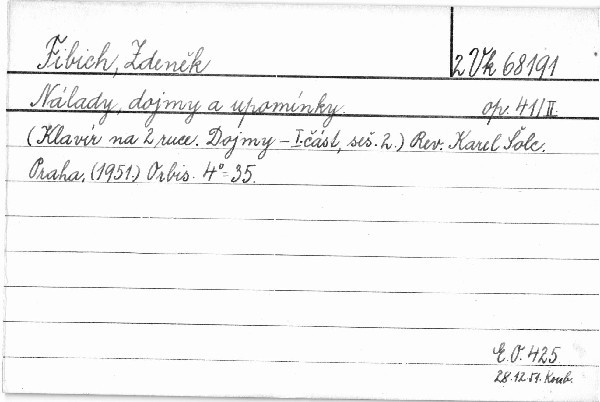 Fibich, Zdeněk 2 Vk 68191
Nálady, dojmy a upomínky. op. 41/II.
(Klavír na 2 ruce. Dojmy – I. část, seš. 2.) Rev. Karel Šolc.
Praha, (1951.) Orbis. 4°= 35.
E.O. 425
28.12.51.